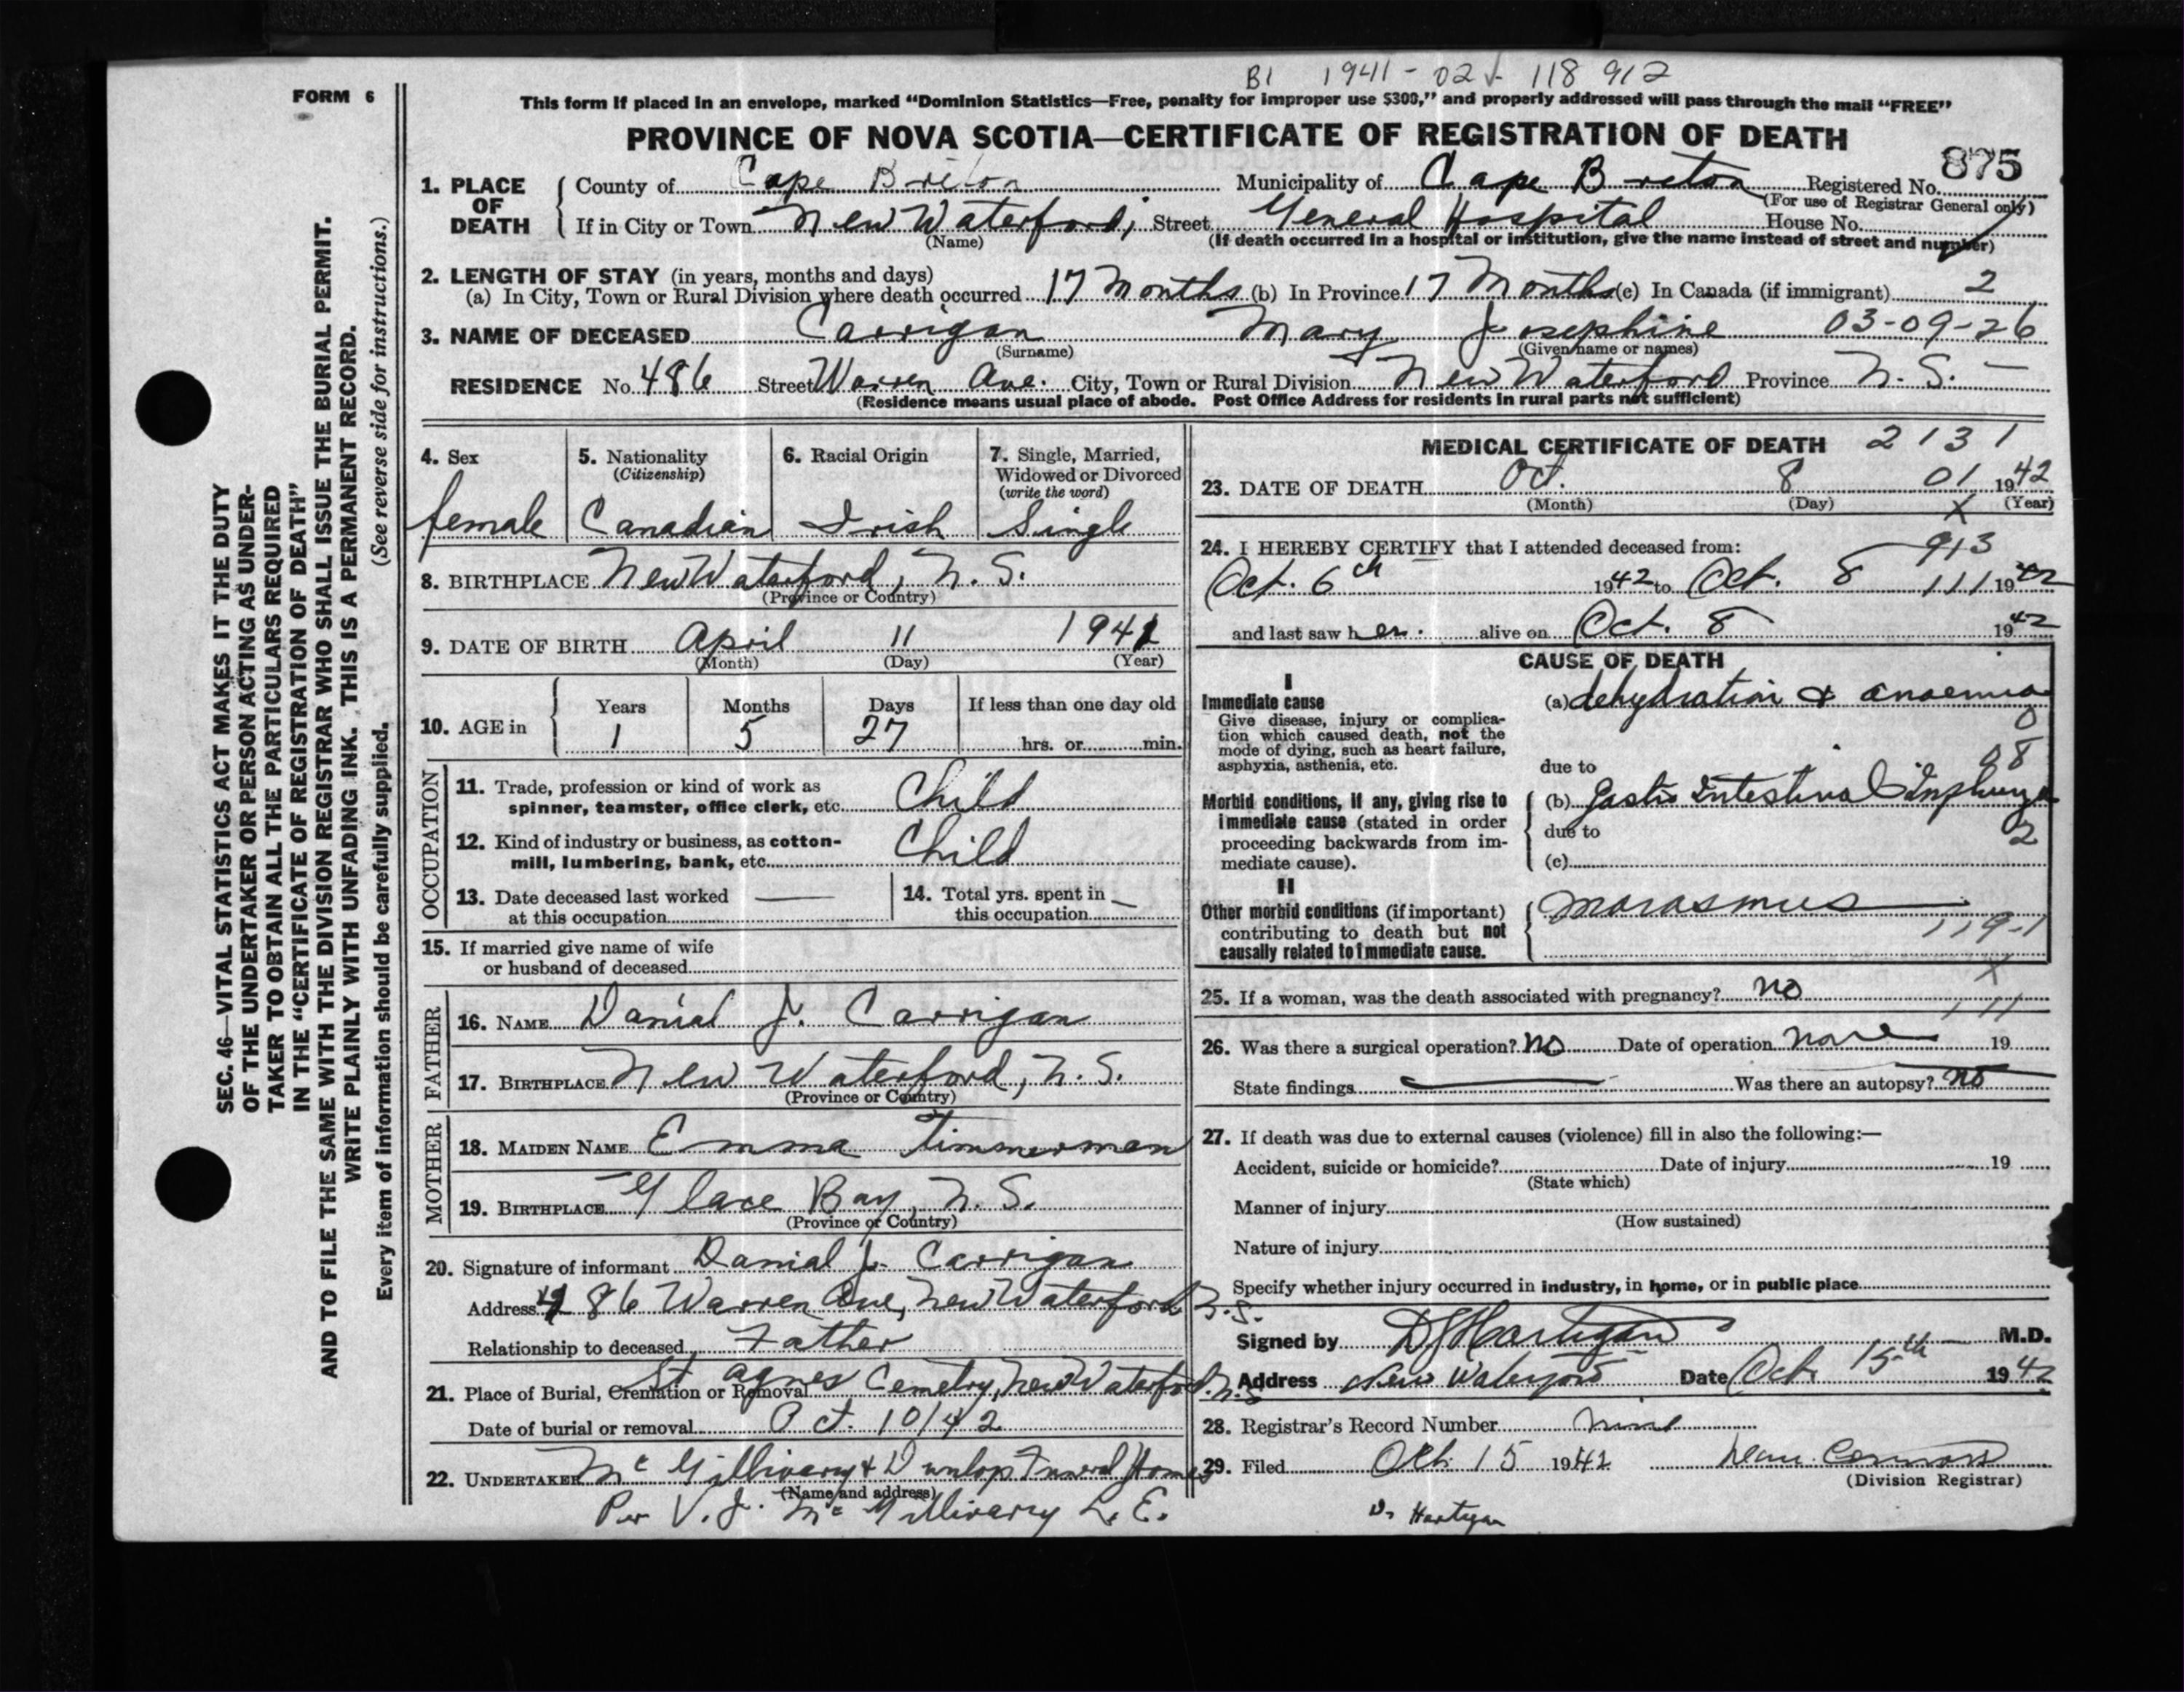 B1 1941-02 118 912
FORM 6
This form if placed in an envelope, marked “Dominion Statistics—Free, penalty for improper use $300,” and properly addressed will pass through the mail “FREE”
PROVINCE OF NOVA SCOTIA—CERTIFICATE OF REGISTRATION OF DEATH
875
1. PLACE OF DEATH County of Cape Breton Municipality of Cape Breton Registered No.
(For use of Registrar General only)
If in City or Town New Waterford, Street General Hospital House No.
(Name) (If death occurred in a hospital or institution, give the name instead of street and number)
2. LENGTH OF STAY (in years, months and days)
(a) In City, Town or Rural Division where death occurred 17 Months (b) In Province 17 Months (c) In Canada (if immigrant) 2
3. NAME OF DECEASED Carrigan Mary Josephine 03-09-26
(Surname) (Given name or names)
RESIDENCE No. 486 Street Warren Ave. City, Town or Rural Division New Waterford Province N. S. —
(Residence means usual place of abode. Post Office Address for residents in rural parts not sufficient)
SEC. 46—VITAL STATISTICS ACT MAKES IT THE DUTY
OF THE UNDERTAKER OR PERSON ACTING AS UNDER-
TAKER TO OBTAIN ALL THE PARTICULARS REQUIRED
IN THE “CERTIFICATE OF REGISTRATION OF DEATH”
AND TO FILE THE SAME WITH THE DIVISION REGISTRAR WHO SHALL ISSUE THE BURIAL PERMIT.
WRITE PLAINLY WITH UNFADING INK. THIS IS A PERMANENT RECORD.
Every item of information should be carefully supplied. (See reverse side for instructions.)
4. Sex 5. Nationality 6. Racial Origin 7. Single, Married,
(Citizenship) Widowed or Divorced
(write the word)
female Canadian Irish Single
8. BIRTHPLACE New Waterford, N. S.
(Province or Country)
9. DATE OF BIRTH April 11 1941
(Month) (Day) (Year)
10. AGE in Years Months Days If less than one day old
1 5 27 hrs. or min.
OCCUPATION
11. Trade, profession or kind of work as
spinner, teamster, office clerk, etc. Child
12. Kind of industry or business, as cotton-
mill, lumbering, bank, etc. Child
13. Date deceased last worked —
at this occupation
14. Total yrs. spent in —
this occupation
15. If married give name of wife
or husband of deceased
FATHER
16. NAME Danial J. Carrigan
17. BIRTHPLACE New Waterford, N. S.
(Province or Country)
MOTHER
18. MAIDEN NAME Emma Timmerman
19. BIRTHPLACE Glace Bay, N. S.
(Province or Country)
20. Signature of informant Danial J. Carrigan
Address 486 Warren Ave, New Waterford N.S.
Relationship to deceased Father
21. Place of Burial, Cremation or Removal St Agnes Cemetry, New Waterford. N.S
Date of burial or removal Oct. 10/42
22. UNDERTAKER Mc Gillivary & Dunlop Funeral Homes
(Name and address)
Per V. J. Mc Gillivary L. E.
MEDICAL CERTIFICATE OF DEATH 2131
23. DATE OF DEATH Oct. 8 01 1942
(Month) (Day) (Year)
X
24. I HEREBY CERTIFY that I attended deceased from: 913
Oct. 6th 1942 to Oct. 8 111 1942
and last saw her alive on Oct. 8 1942
CAUSE OF DEATH
I
Immediate cause (a) dehydration & anaemia
Give disease, injury or complica-
tion which caused death, not the 0
mode of dying, such as heart failure,
asphyxia, asthenia, etc. due to 08
Morbid conditions, if any, giving rise to (b) Gastro Intestinal Influenza
immediate cause (stated in order due to 2
proceeding backwards from im-
mediate cause). (c)
II
Other morbid conditions (if important) Marasmus
contributing to death but not 119-1
causally related to immediate cause.
X
25. If a woman, was the death associated with pregnancy? no
111
26. Was there a surgical operation? No Date of operation none 19
State findings — Was there an autopsy? no
27. If death was due to external causes (violence) fill in also the following:—
Accident, suicide or homicide? Date of injury 19
(State which)
Manner of injury
(How sustained)
Nature of injury
Specify whether injury occurred in industry, in home, or in public place
Signed by DJ Hartigan M.D.
Address New Waterford Date Oct. 15th 1942
28. Registrar’s Record Number
29. Filed Oct. 15 1942 Connors
(Division Registrar)
Dr Hartigan